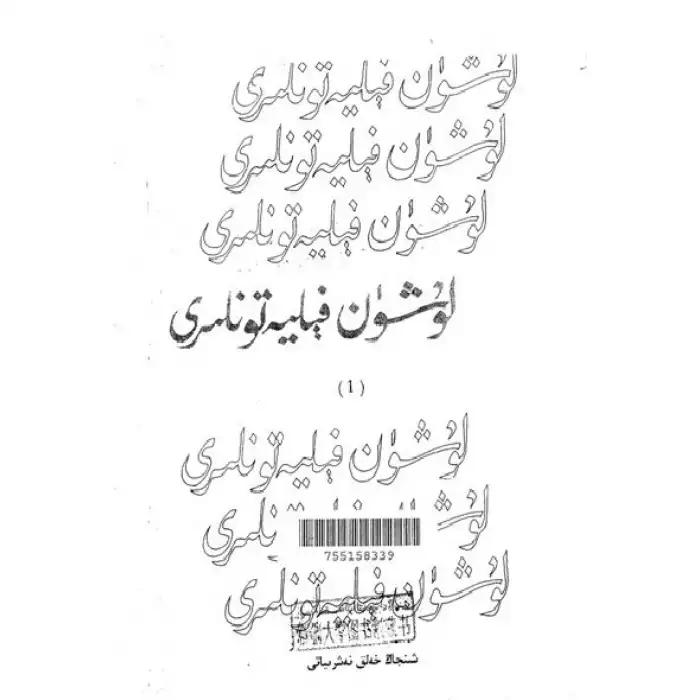 لۇشۈن فېليەتونلىرى
لۇشۈن فېليەتونلىرى
لۇشۈن فېليەتونلىرى
لۇشۈن فېليەتونلىرى
(1)
لۇشۈن فېليەتونلىرى
لۇشۈن نلىرى
755158339
لۇشۈن فېليەتونلىرى
شىنجاڭ خەلق نەشرىياتى